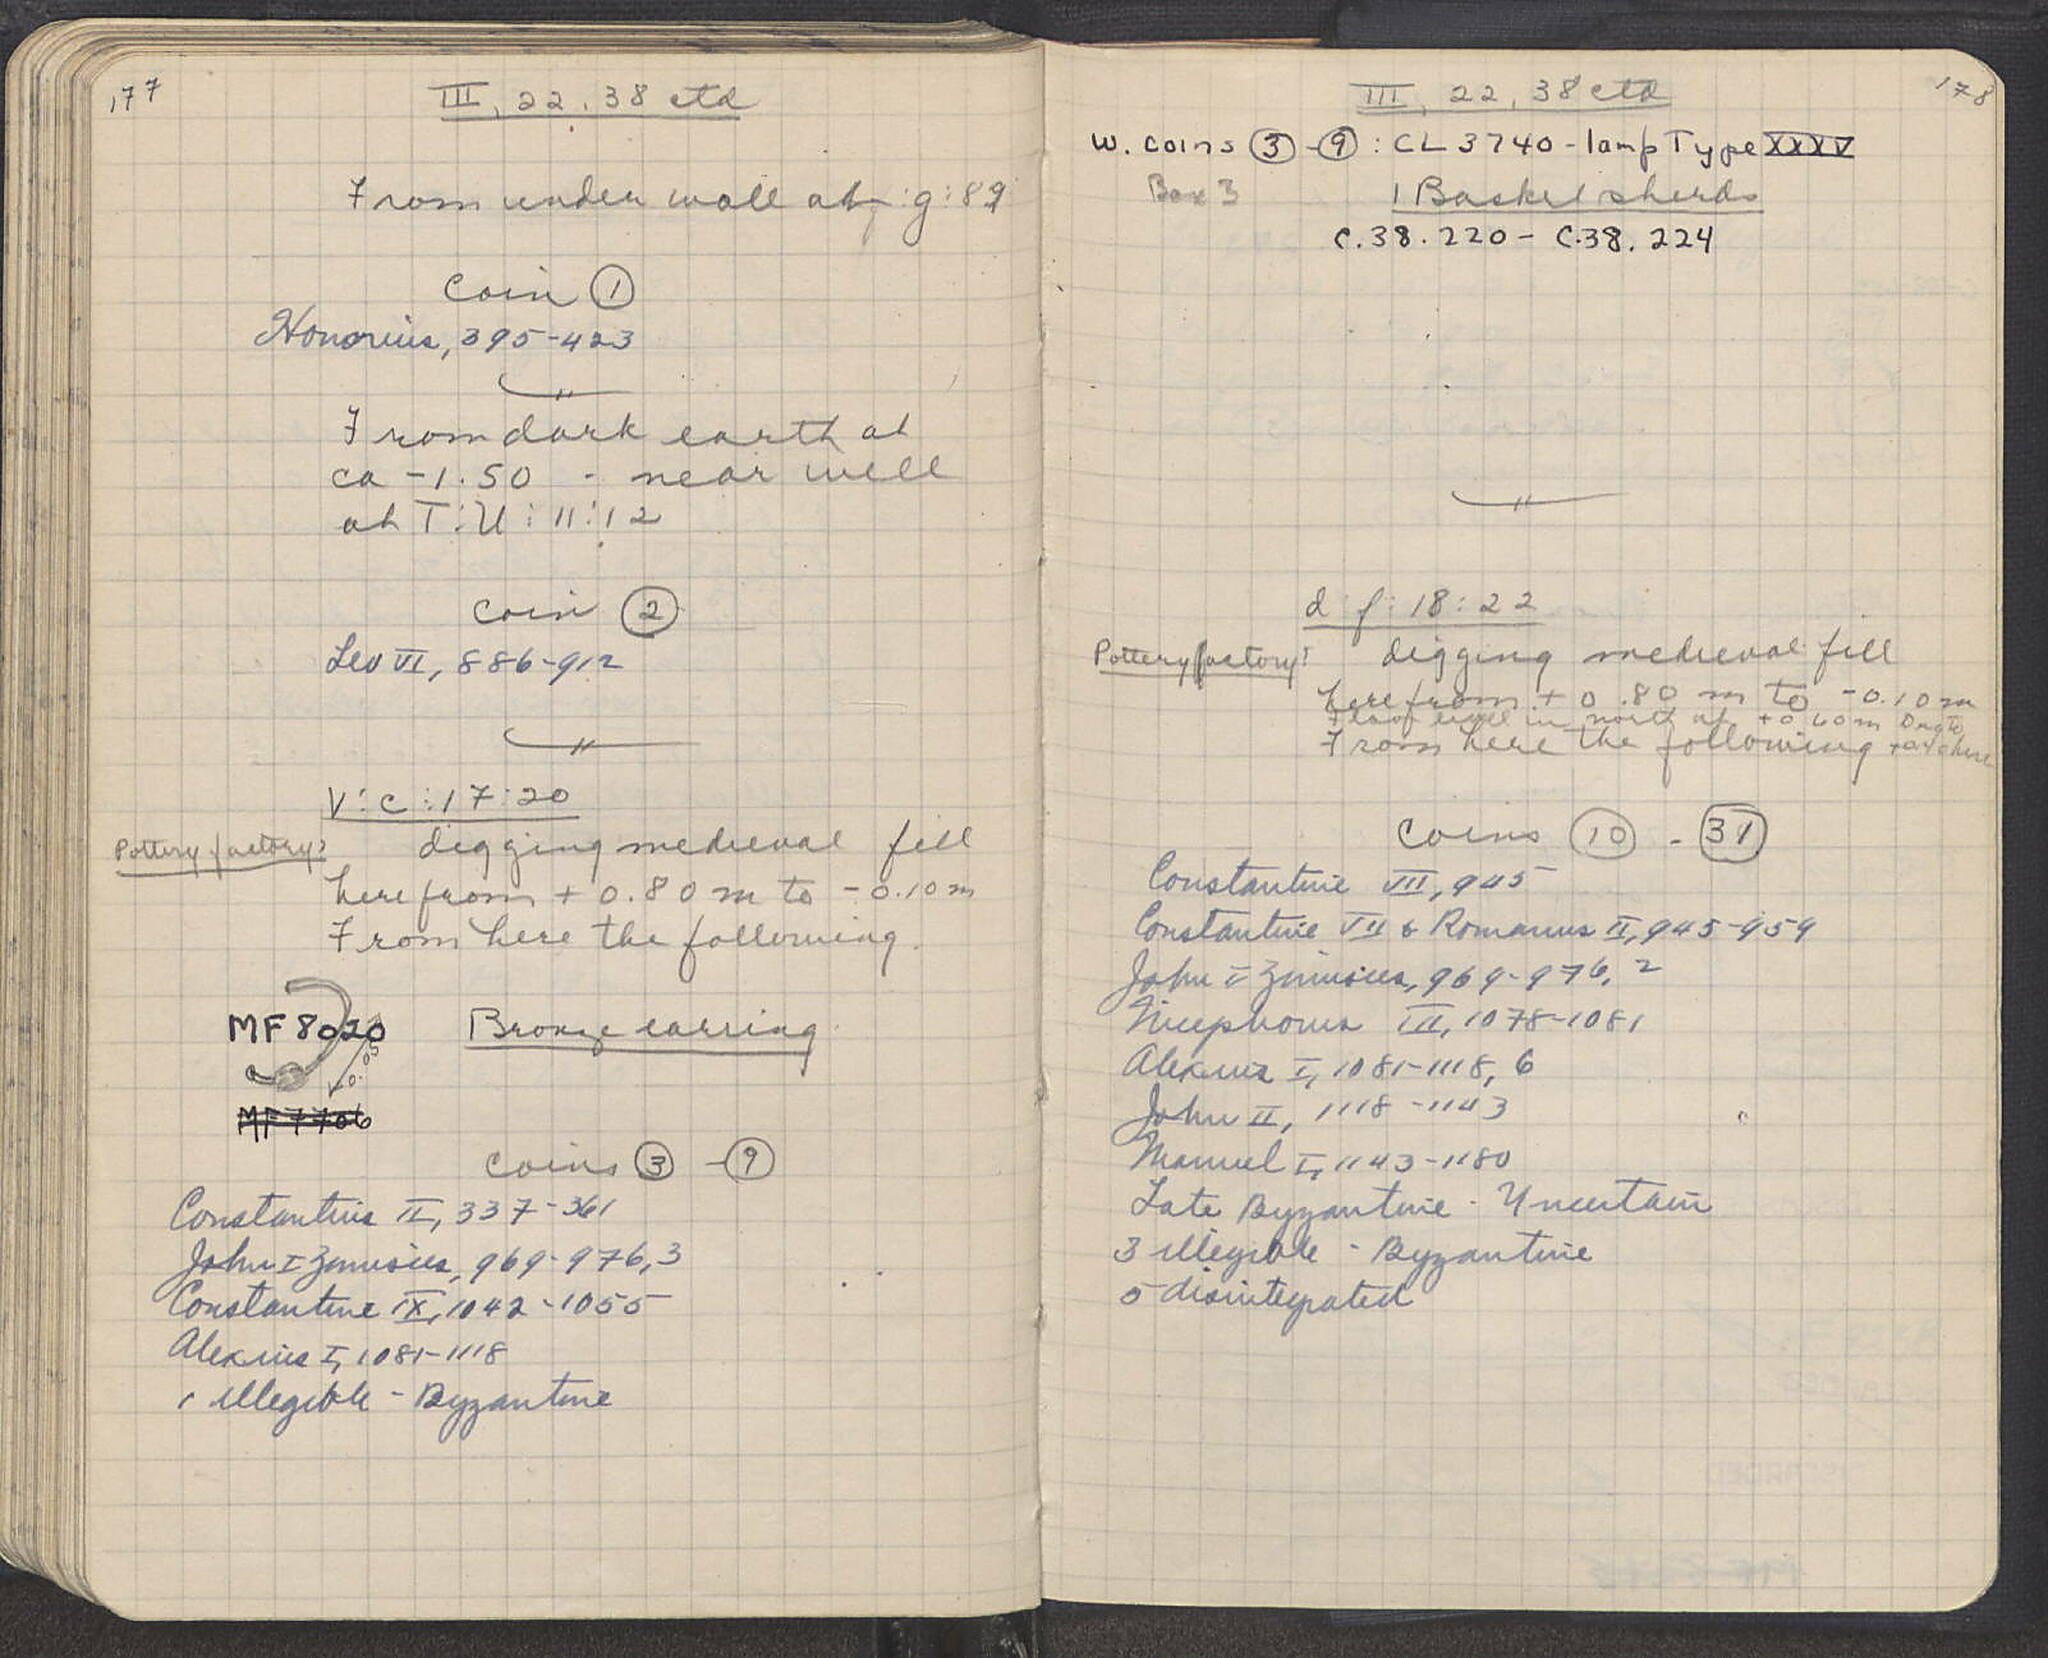 177
III, 22, 38 ctd
From under wall at f:g:8:9
Coin ①
Honorius, 395-423
From dark earth at
ca -1.50 - near well
at T:U:11:12
Coin ②
Leo VI, 886-912
V:c:17:20
Pottery factory? digging medieval fill
here from +0.80 m to -0.10 m
From here the following.
MF 8020 Bronze earring
MF 7706
Coins ③ - ⑨
Constantius II, 337-361
John I Zimisces, 969-976, 3
Constantine IX, 1042-1055
Alexius I, 1081-1118
1 illegible - Byzantine
178
III, 22, 38 ctd
W. coins ③-⑨: CL 3740 - lamp Type XXXV
Box 3 1 Basket sherds
C.38.220 - C.38.224
d:f:18:22
Pottery factory? digging medieval fill
here from +0.80 m to -0.10 m
Floor level in north at +0.60m
From here the following
Coins ⑩ - ㉛
Constantine VII, 945
Constantine VII & Romanus II, 945-959
John I Zimisces, 969-976, 2
Nicephorus III, 1078-1081
Alexius I, 1081-1118, 6
John II, 1118-1143
Manuel I, 1143-1180
Late Byzantine - Uncertain
3 illegible - Byzantine
5 disintegrated